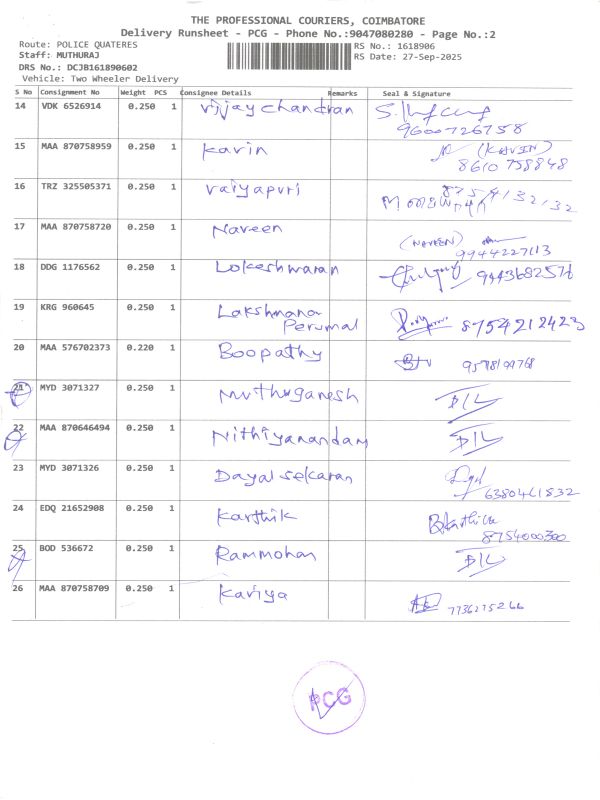 THE PROFESSIONAL COURIERS, COIMBATORE
Delivery Runsheet - PCG - Phone No.:9047080280 - Page No.:2
Route: POLICE QUATERES
RS No.: 1618906
Staff: MUTHURAJ
RS Date: 27-Sep-2025
DRS No.: DCJB161890602
Vehicle: Two Wheeler Delivery
S No Consignment No Weight PCS Consignee Details Remarks Seal & Signature
14 VDK 6526914 0.250 1 Vijay chandran
9600726758
15 MAA 870758959 0.250 1 Kavin (KAVIN)
8610 758848
16 TRZ 325505371 0.250 1 Vaiyapuri 8754132132
17 MAA 870758720 0.250 1 Naveen
(NAVEEN) 9944227113
18 DDG 1176562 0.250 1 Lokeshwaran 9443682576
19 KRG 960645 0.250 1 Lakshmana
Perumal 8754212423
20 MAA 576702373 0.220 1 Boopathy
21 MYD 3071327 0.250 1 Muthuganesh D/L
22 MAA 870646494 0.250 1 Nithiyanandam D/L
23 MYD 3071326 0.250 1 Dayalsekaran
6380461832
24 EDQ 21652908 0.250 1 Karthik Karthik
8754000300
25 BOD 536672 0.250 1 Rammohan D/L
26 MAA 870758709 0.250 1 Kaviya 7736275266
PCG